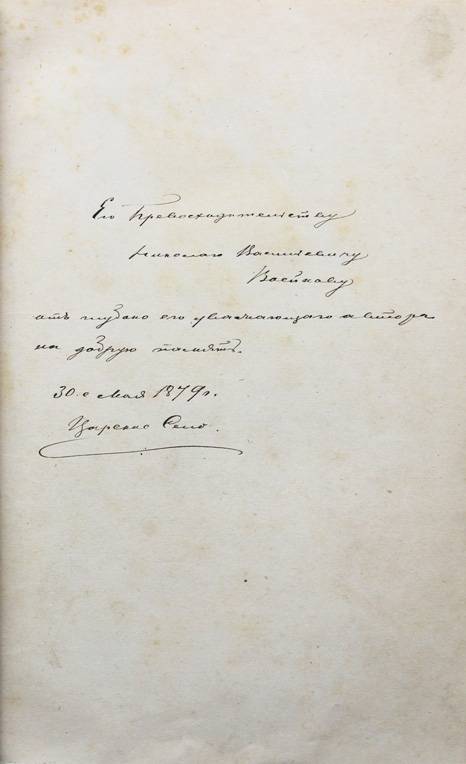 Его Превосходительству
Николаю Васильевичу
Воейкову
отъ глубоко его уважающаго автора
на добрую память.
30-е мая 1879 г.
Царское Село.